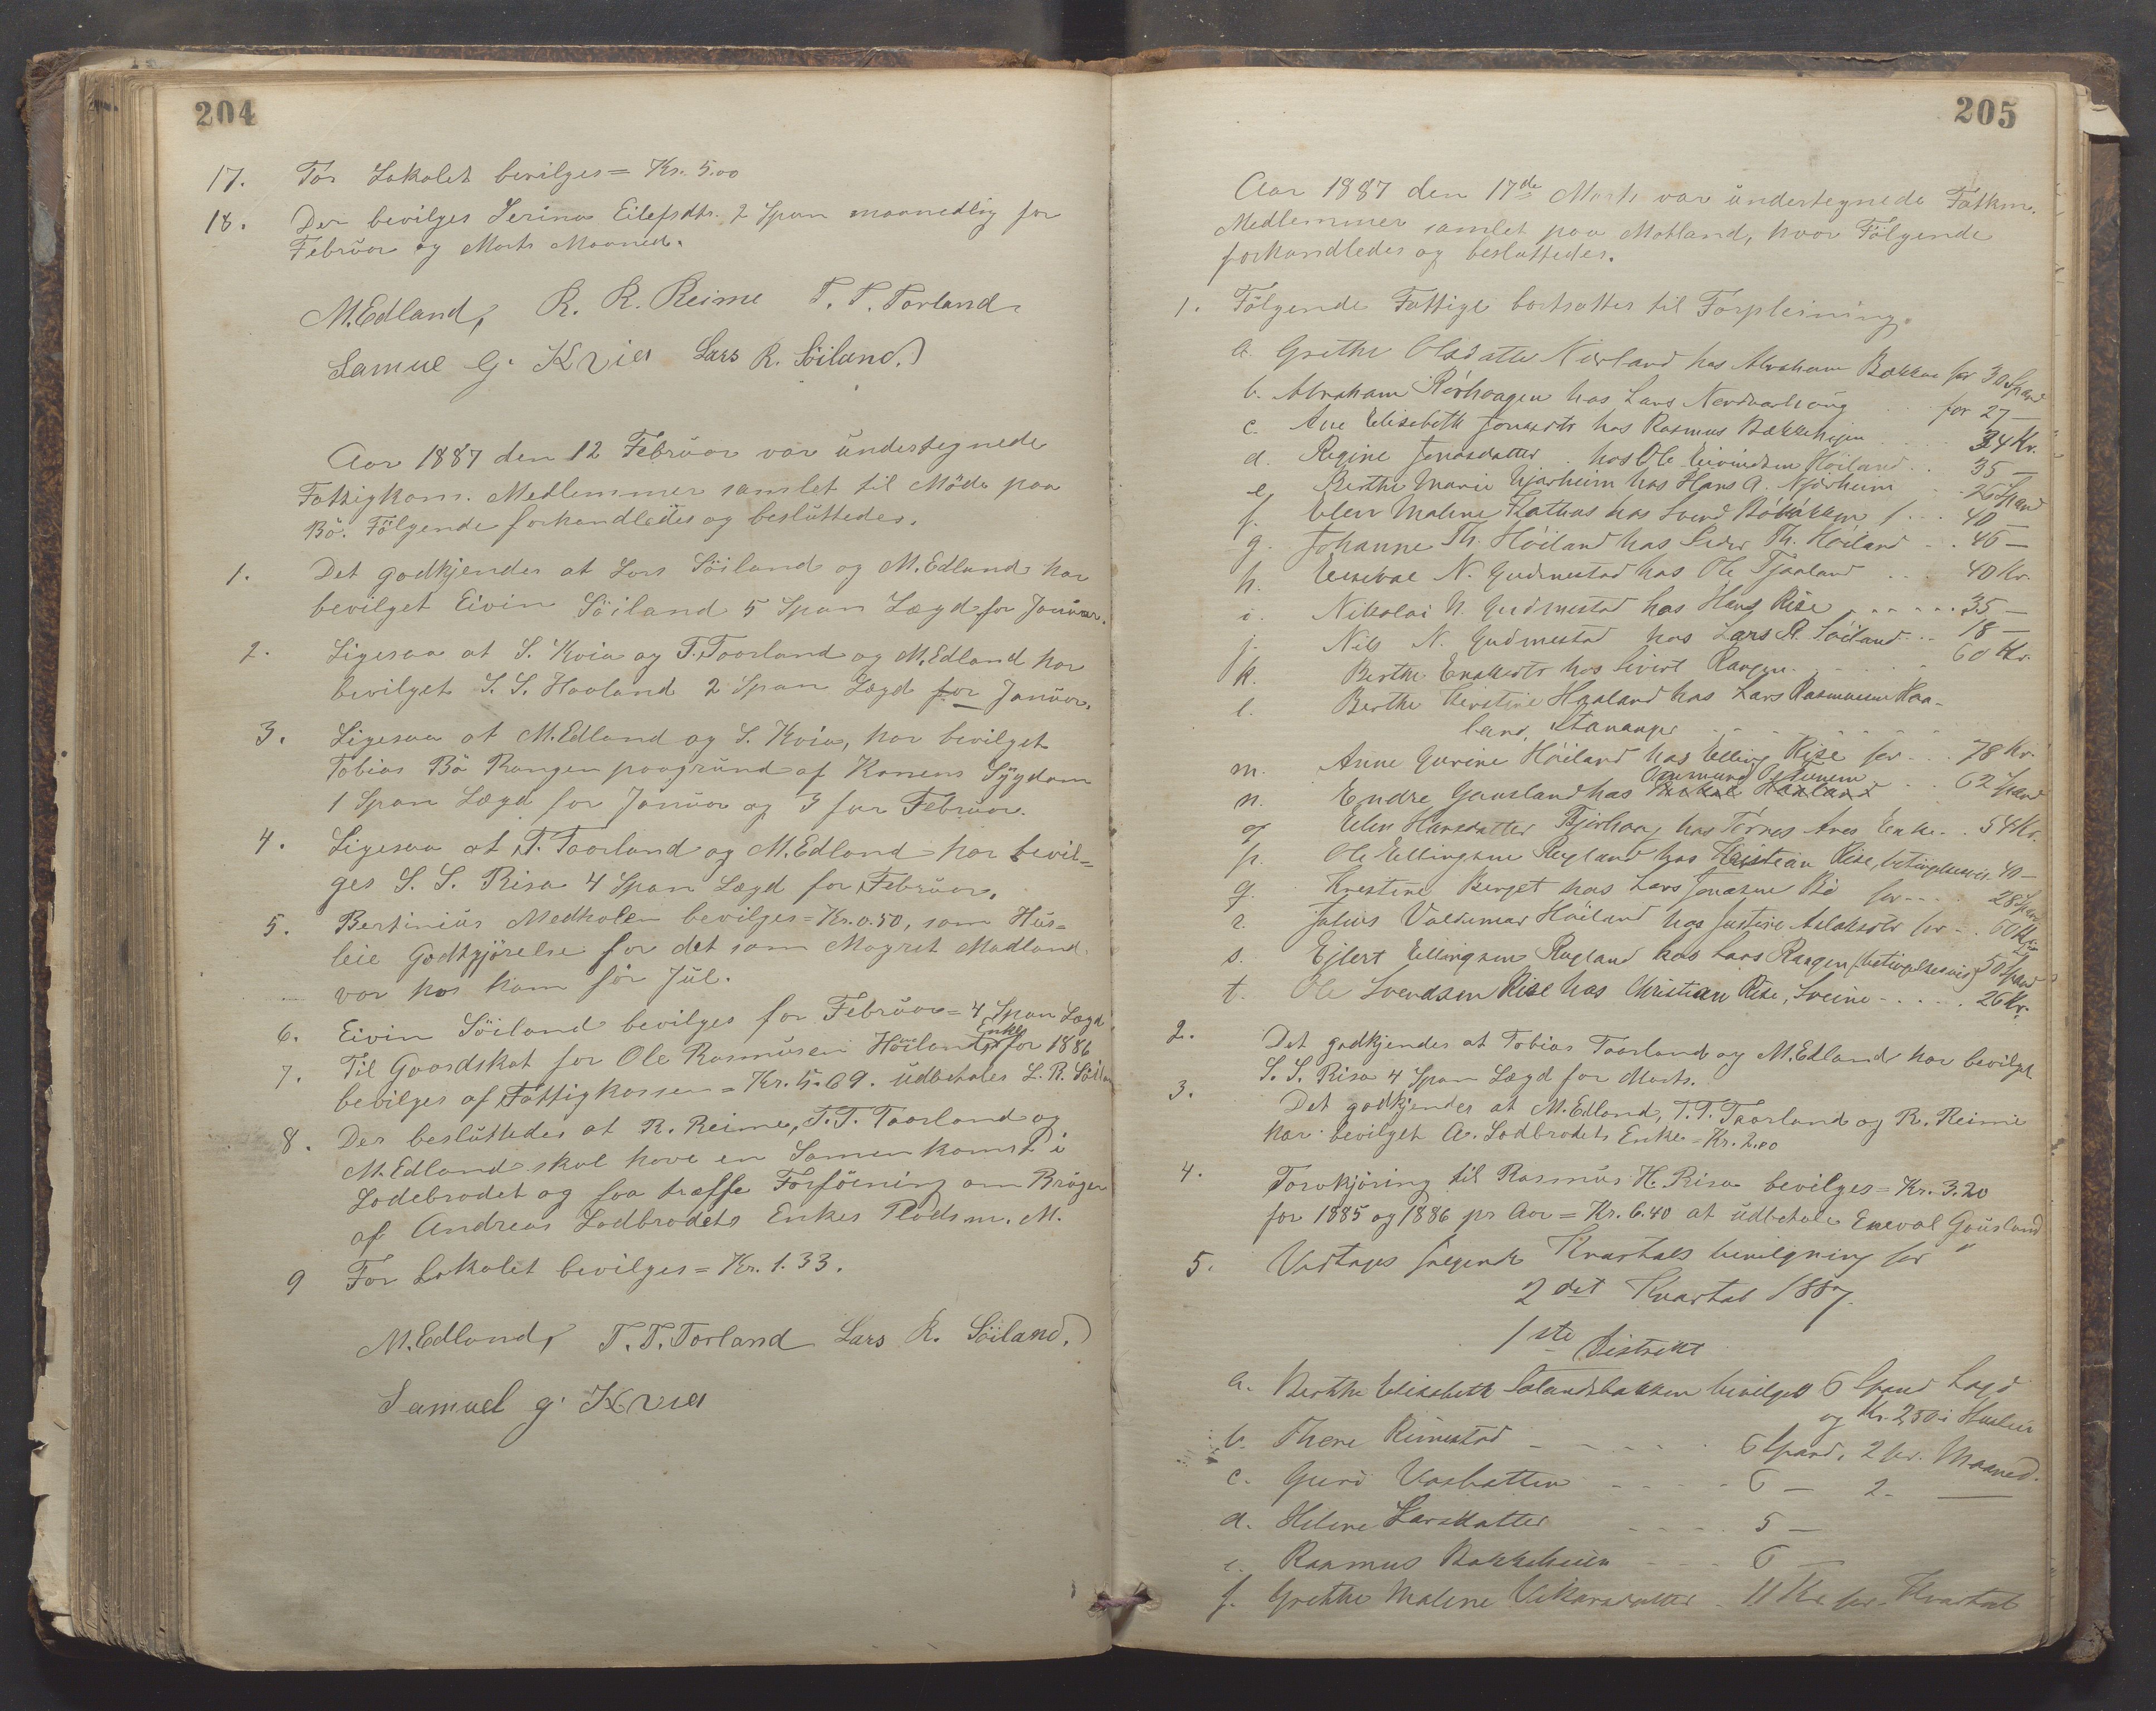 204
17. For Lokalet bevilges = Kr. 5.00
18. Der bevilges Serina Eilefsdtr. 2 Span maanedlig for
Februar og Marts Maaned.
M. Edland, R. R. Reime T. T. Torland.
Samuel G. Kvia Lars R. Söiland.
Aar 1887 den 12 Februar var undertegnede
Fattigkom. Medlemmer samlet til Möde paa
Bö. Fölgende forhandledes og besluttedes.
1. Det godkjendes at Lars Söiland og M. Edland har
bevilget Eivin Söiland 5 Span Lægd for Januar.
2. Ligesaa at S. Kvia og T. Taarland og M. Edland har
bevilget S. S. Haaland 2 Span Lægd for Januar.
3. Ligesaa at M. Edland og S. Kvia, har bevilget
Tobias Bö Rangen paagrund af Konens Sygdom
1 Span Lægd for Januar og 3 for Februar.
4. Ligesaa at T. Taarland og M. Edland har bevil=
ges S. S. Risa 4 Span Lægd for Februar.
5. Bertinius Madholen bevilges = Kr. 0.50, som Hus=
leie Godtgjörelse for det som Magret Madland
var hos ham för Jul.
6. Eivin Söiland bevilges for Februar = 4 Span Lægd
Enke
7. Til Gaardskat for Ole Rasmusen Höiland for 1886
bevilges af Fattigkassen = Kr. 5.69. udbetales L. R. Söiland
8. Der besluttedes at R. Reime, T. T. Taarland og
M. Edland skal have en Samenkomst i
Lodebrodet og faa træffe Forföining om Brugen
af Andreas Lodbrodets Enkes Plads m. M.
9 For Lokalet bevilges = Kr. 1.33.
M. Edland, T. T. Torland Lars R. Söiland.
Samuel G. Kvia
205
Aar 1887 den 17de Marts var undertegnede Fatkm.
Medlemmer samlet paa Motland, hvor Fölgende
forhandledes og besluttedes.
1. Fölgende Fattige bortsattes til Forpleining.
a. Grethe Olsdatter Nærland hos Abraham Bakken for 30 Spand
b. Abraham Rörhaagen hos Lars Nordvarhoug for 27 —
c. Ane Elisabeth Jonasdtr hos Rasmus Bækkehejen 34 Kr.
d. Regine Jonasdatter hos Ole Eivindsen Höiland .. 35 —
e. Berthe Marie Njærheim hos Hans A. Njærheim .. 25 Spand
f. Elen Malene hos Svend 40
g. Johanne Th. Höiland hos Peder Th. Höiland .. 45 —
h. Enevæl N. Gudmestad hos Ole Tjaaland ... 40 Kr.
i. Nikolai N. Gudmestad hos Hans Rise ...... 35 —
j. Nils N. Gudmestad hos Lars R. Söiland ... 18 —
k. Berthe hos Sivert Rangen ..... 60 Kr.
l. Berthe Kirstine Haaland hos Lars Rasmusen Haa-
land, Stavanger
m. Anne Gurine Höiland hos Elling Rise for ... 78 Kr.
n. Endre Gausland hos Haaland .. 62 Spand
o. Elen Hansdatter hos Tönnes Aves Enke .. 54 Kr.
p. Ole Ellingsen Rugland hos Kristian Rise, betingelsesvis 40 —
q. Kirstine Berget hos Lars Jonassen Bö for .... 28 Span
r. Julius Valdemar Höiland hos Justine Aslaksdtr for .. 60 Kr.
s. Ejlert Ellingsen Rugland hos Lars Rangen (betingelsesvis) 50 Spand
t. Ole Svendsen Rise hos Christian Rise, Sveine ..... 26 Kr.
2. Det godkjendes at Tobias Taarland og M. Edland har bevilget
S. S. Risa 4 Span Lægd for Marts.
3. Det godkjendes at M. Edland, T. T. Taarland og R. Reime
har bevilget A. Lodbrodets Enke = Kr. 2.00
4. Torvkjöring til Rasmus H. Risa bevilges = Kr. 3.20
for 1885 og 1886 pr Aar = Kr. 6.40 at udbetale Eneval Gausland
5. Vedtages fölgende Kvartals bevilgning for
2det Kvartal 1887.
1ste Distrikt
a. Berthe Elisabeth bevilges 6 Spand Lægd
og Kr. 2,50 i Husleie
b. Thore Rimestad 6 Spand, 2 pr. Maaned.
c. Guro 6 — 2 - —
d. Helene Larsdatter 5 —
e. Rasmus Bakkeheien 6 —
f. Grethe Malene 11 Kr for Kvartal